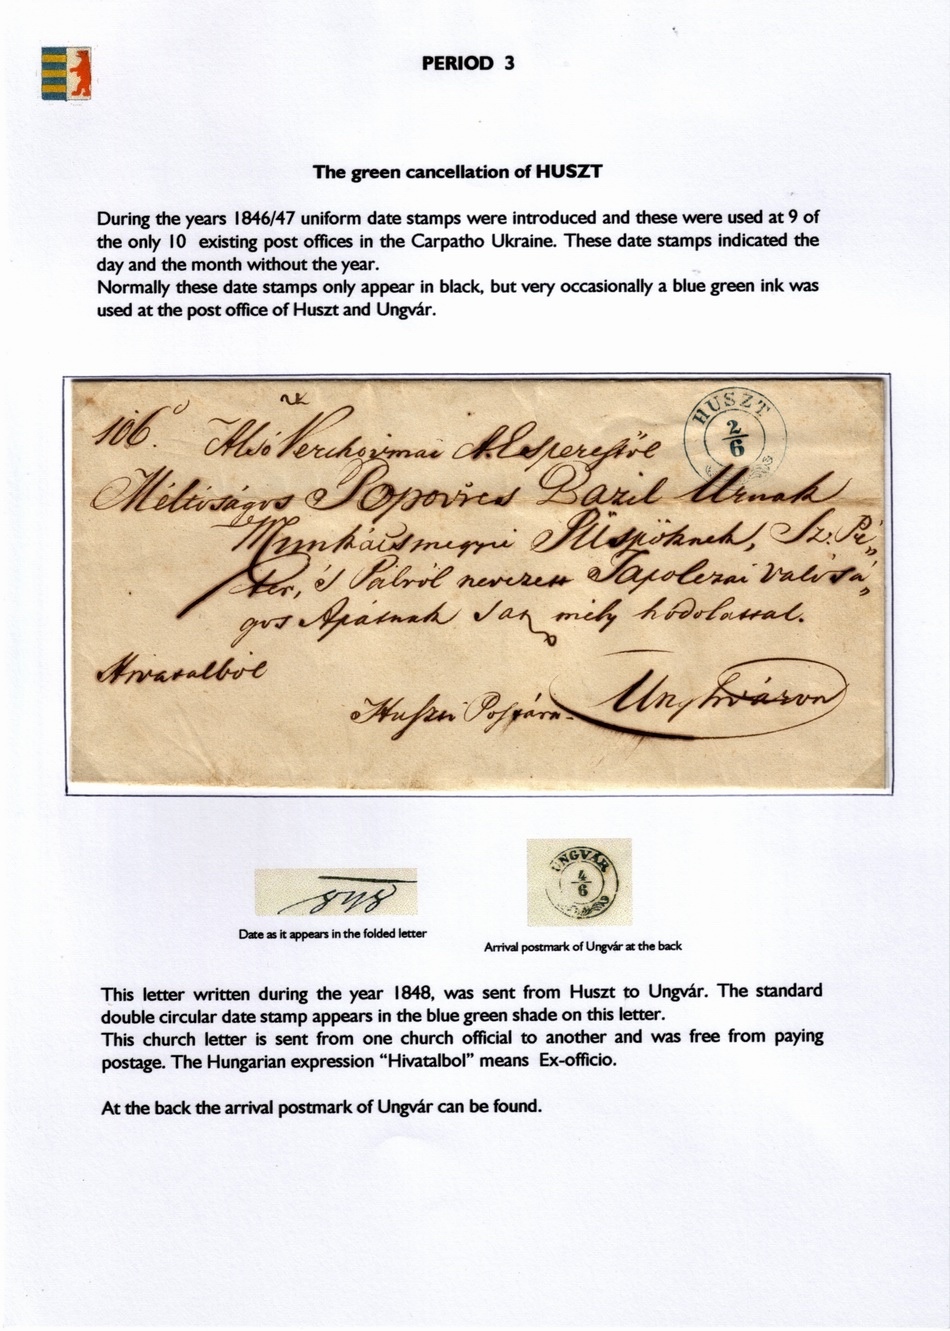 PERIOD 3
The green cancellation of HUSZT
During the years 1846/47 uniform date stamps were introduced and these were used at 9 of
the only 10 existing post offices in the Carpatho Ukraine. These date stamps indicated the
day and the month without the year.
Normally these date stamps only appear in black, but very occasionally a blue green ink was
used at the post office of Huszt and Ungvár.
HUSZT
2
6
106.
Alsó Verchovinai A. Esperestöl
Méltóságos Popovics Bazil Urnak
Munkácsmegyei Püspöknek, Sz: Pé„
ter, 's Pálról nevezett Tapolczai valósá„
gos Apátnak mély hódolattal.
Hivatalból
Huszti Postára
Unghváron
848
UNGVÁR
4
6
Date as it appears in the folded letter
Arrival postmark of Ungvár at the back
This letter written during the year 1848, was sent from Huszt to Ungvár. The standard
double circular date stamp appears in the blue green shade on this letter.
This church letter is sent from one church official to another and was free from paying
postage. The Hungarian expression “Hivatalbol” means Ex-officio.
At the back the arrival postmark of Ungvár can be found.